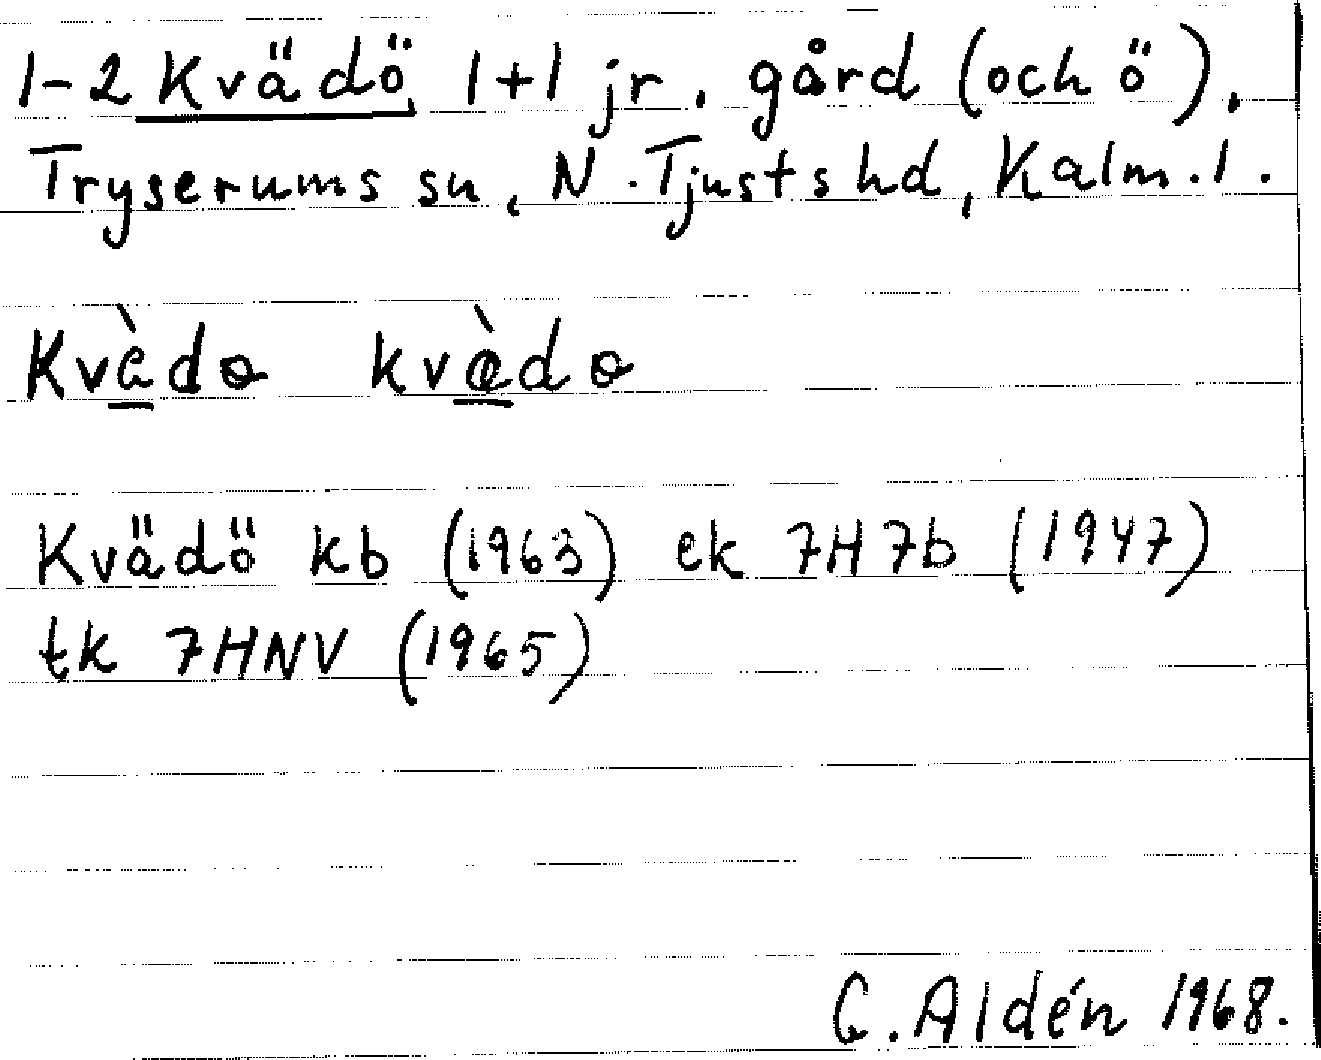 1-2 Kvädö, 1+1 jr. gård (och ö),
Tryserums sn, N. Tjusts hd, Kalm. l.
Kvädö kb (1963) ek 7H7b (1947)
tk 7HNV (1965)
G. Aldén 1968.